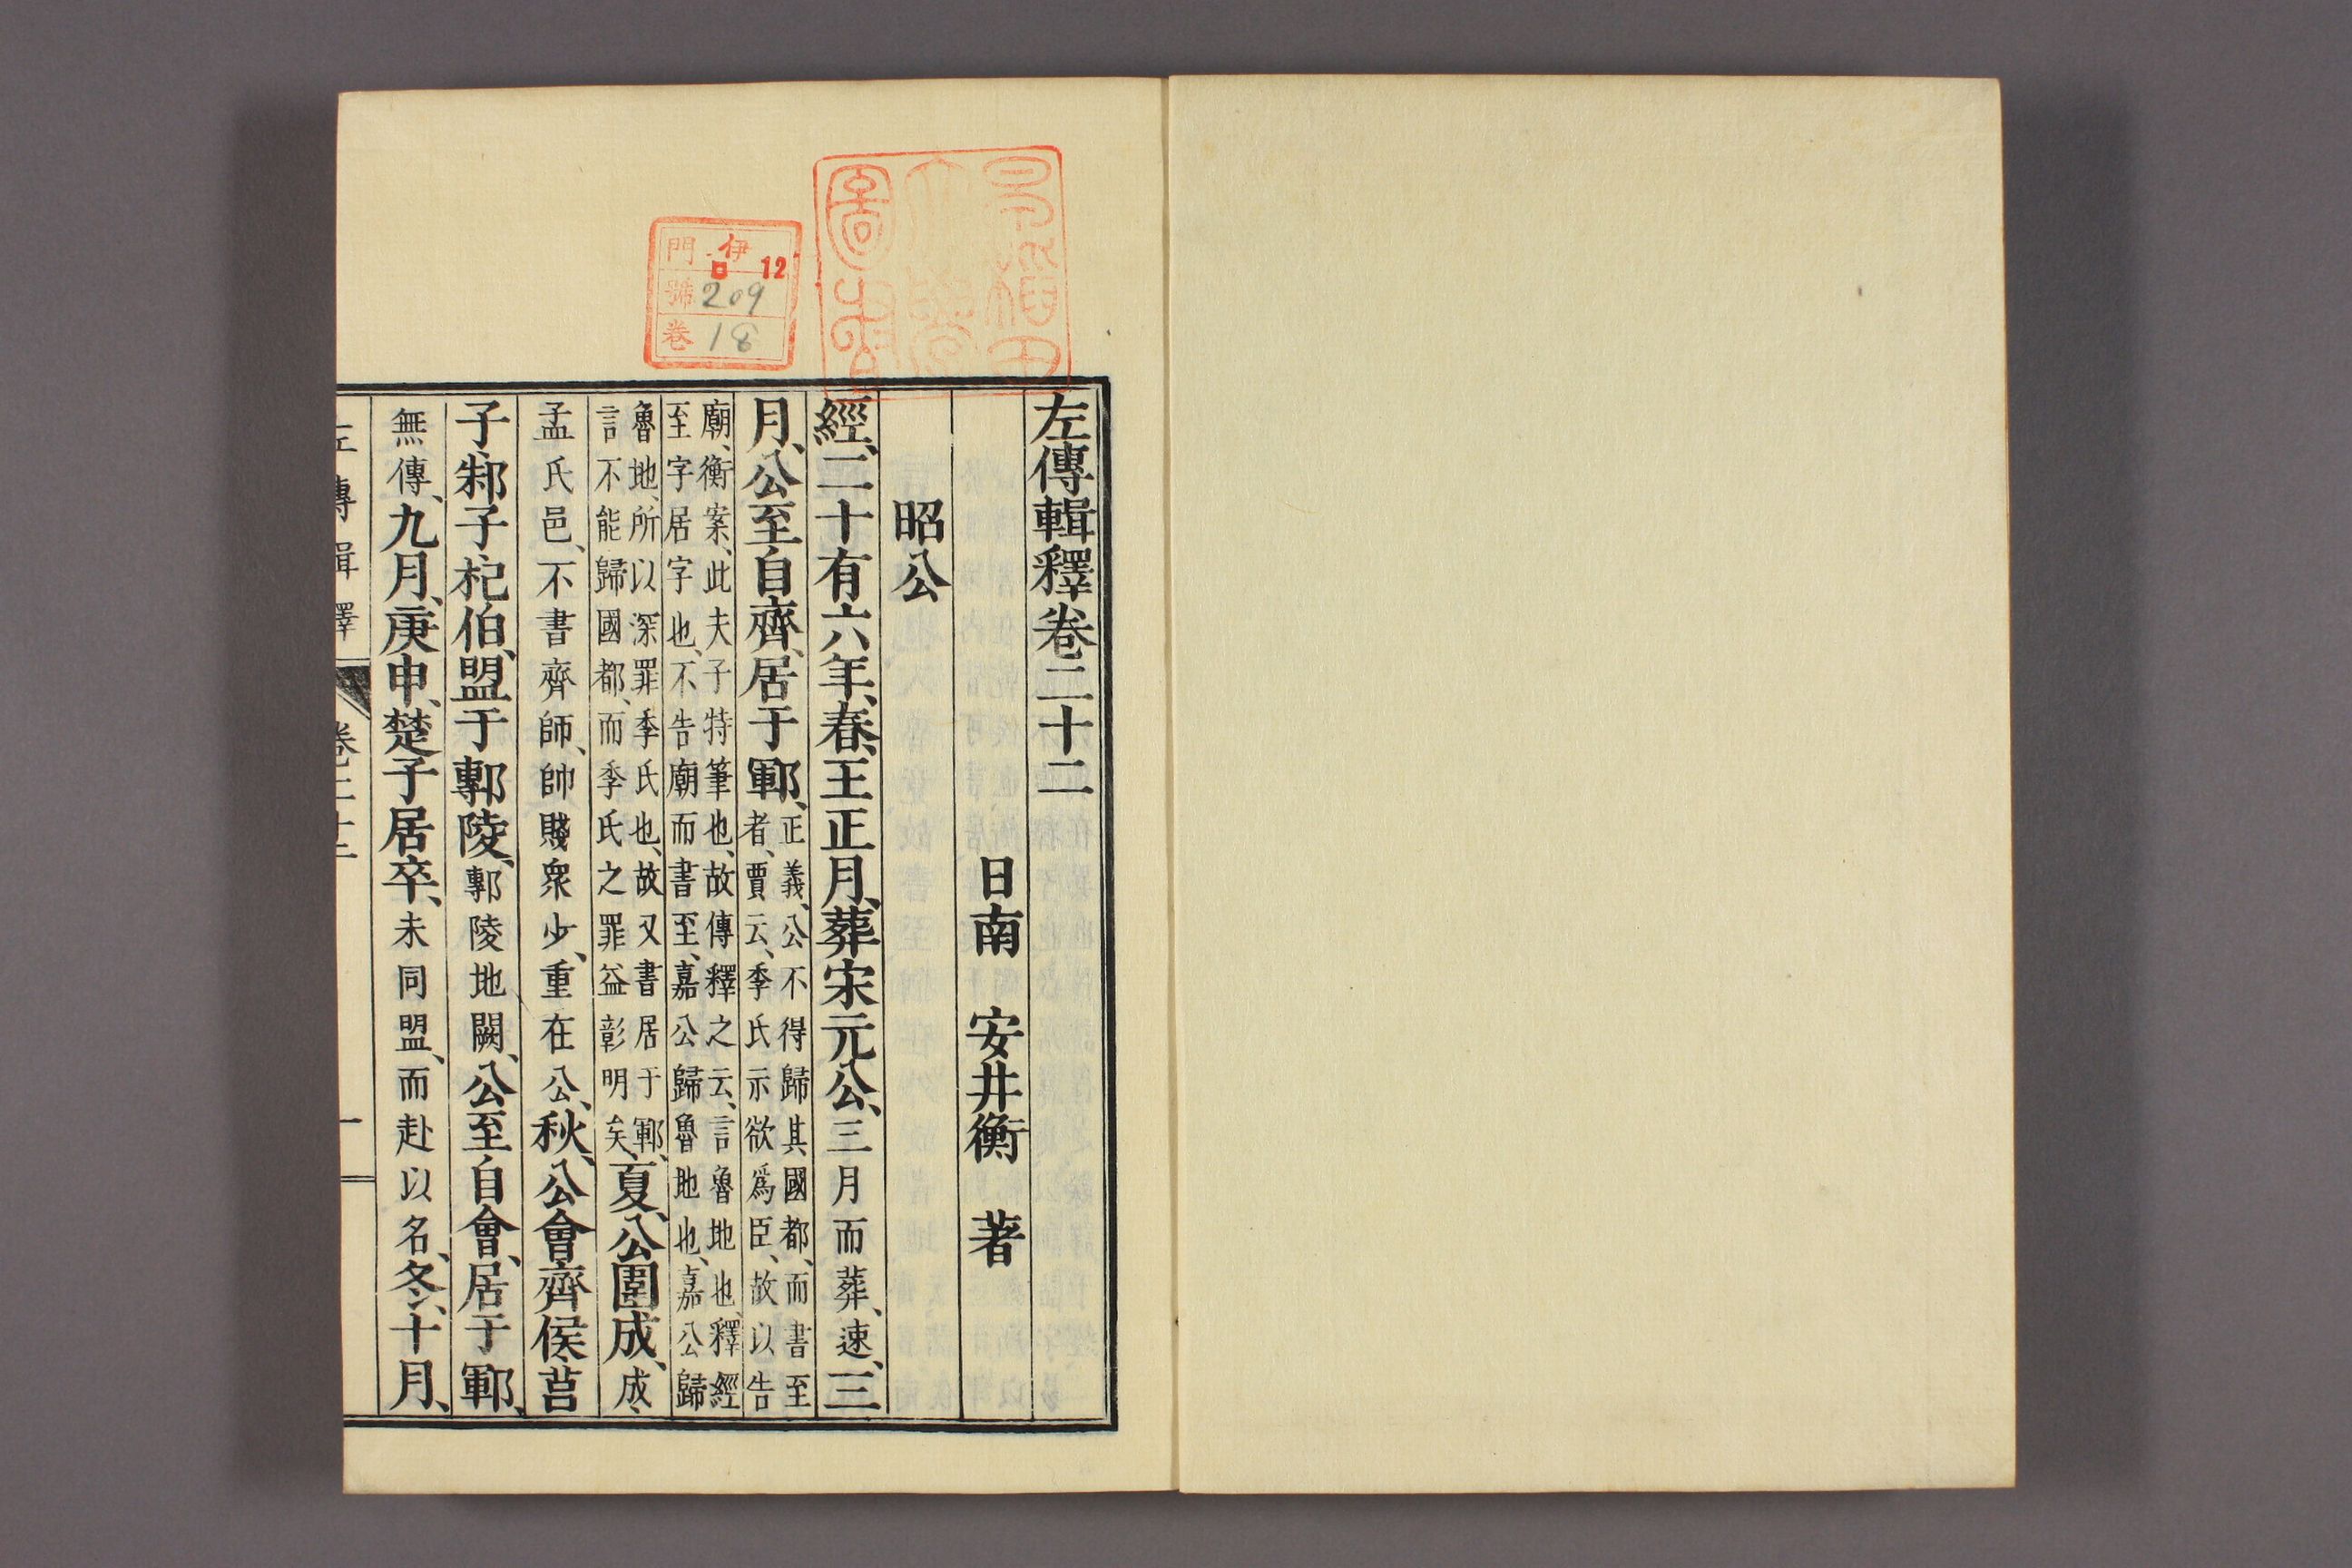 左傳輯釋卷二十二
日南　安井衡　著
昭公
經、二十有六年、春、王正月、葬宋元公、三月而葬、速、三
月、公至自齊、居于鄆、正義、公不得歸其國都、而書至
者、賈云、季氏示欲爲臣、故以告
廟、衡案、此夫子特筆也、故傳釋之云、言魯地也、釋經
至字居字也、不告廟而書至、嘉公歸魯地也、嘉公歸
魯地、所以深罪季氏也、故又書居于鄆、
言不能歸國都、而季氏之罪益彰明矣、夏、公圍成、成、
孟氏邑、不書齊師、帥賤衆少、重在公、秋、公會齊侯莒
子、邾子、杞伯、盟于鄟陵、鄟陵地闕、公至自會、居于鄆、
無傳、九月、庚申、楚子居卒、未同盟、而赴以名、冬、十月、
左傳輯釋　卷二十二　一
早稻田大學圖書
門 伊ロ 12
號 209
卷 18